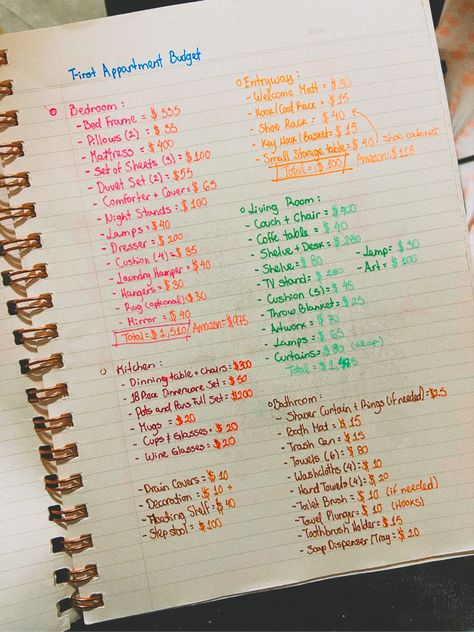 First Appartment Budget
Bedroom:
- Bed Frame = $335
- Pillows (2) = $55
- Mattress = $400
- Set of Sheets (3) = $100
- Duvet Set (2) = $55
- Comforter + Covers = $65
- Night Stands = $100
- Lamps = $40
- Dresser = $200
- Cushion (4) = $35
- Laundry Hamper = $40
- Hangers = $30
- Rug (optional) $30
- Mirror = $40
Total = $1,510 Amazon = $975
Kitchen:
- Dinning table + Chairs = $300
- 18 Piece Dinnerware Set = $50
- Pots and Pans Full Set = $200
- Mugs = $20
- Cups & Glasses = $20
- Wine Glasses = $20
- Drain Covers = $10
- Decoration = $10 +
- Floating Shelf = $40
- Step stool = $100
Entryway:
- Welcome Matt = $30
- Hook/Coat Rack = $15
- Shoe Rack = $40
- Key Hook/Basket = $15
- Small Storage table = $40 shoe cabinet
Total = $100 Amazon: $113
Living Room:
- Couch + Chair = $400
- Coffe table = $40
- Shelve + Desk = $280
- Shelve = $80
- TV stand = $200
- Cushion (5) = $45
- Throw Blanket = $25
- Artwork = $70
- Lamps = $65
- Curtains = $80
Total =
- Lamp = $30
- Art = $100
Bathroom:
- Shower Curtain + Rings (if needed) = $25
- Bath Mat = $15
- Trash Can = $15
- Towels (6) = $80
- Washcloths (4) = $10
- Hand Towels (4) = $20
- Toilet Brush = $10 (if needed)
- Towel Plunger = $10 (Hooks)
- Toothbrush Holder = $15
- Soap Dispenser/Tray = $20